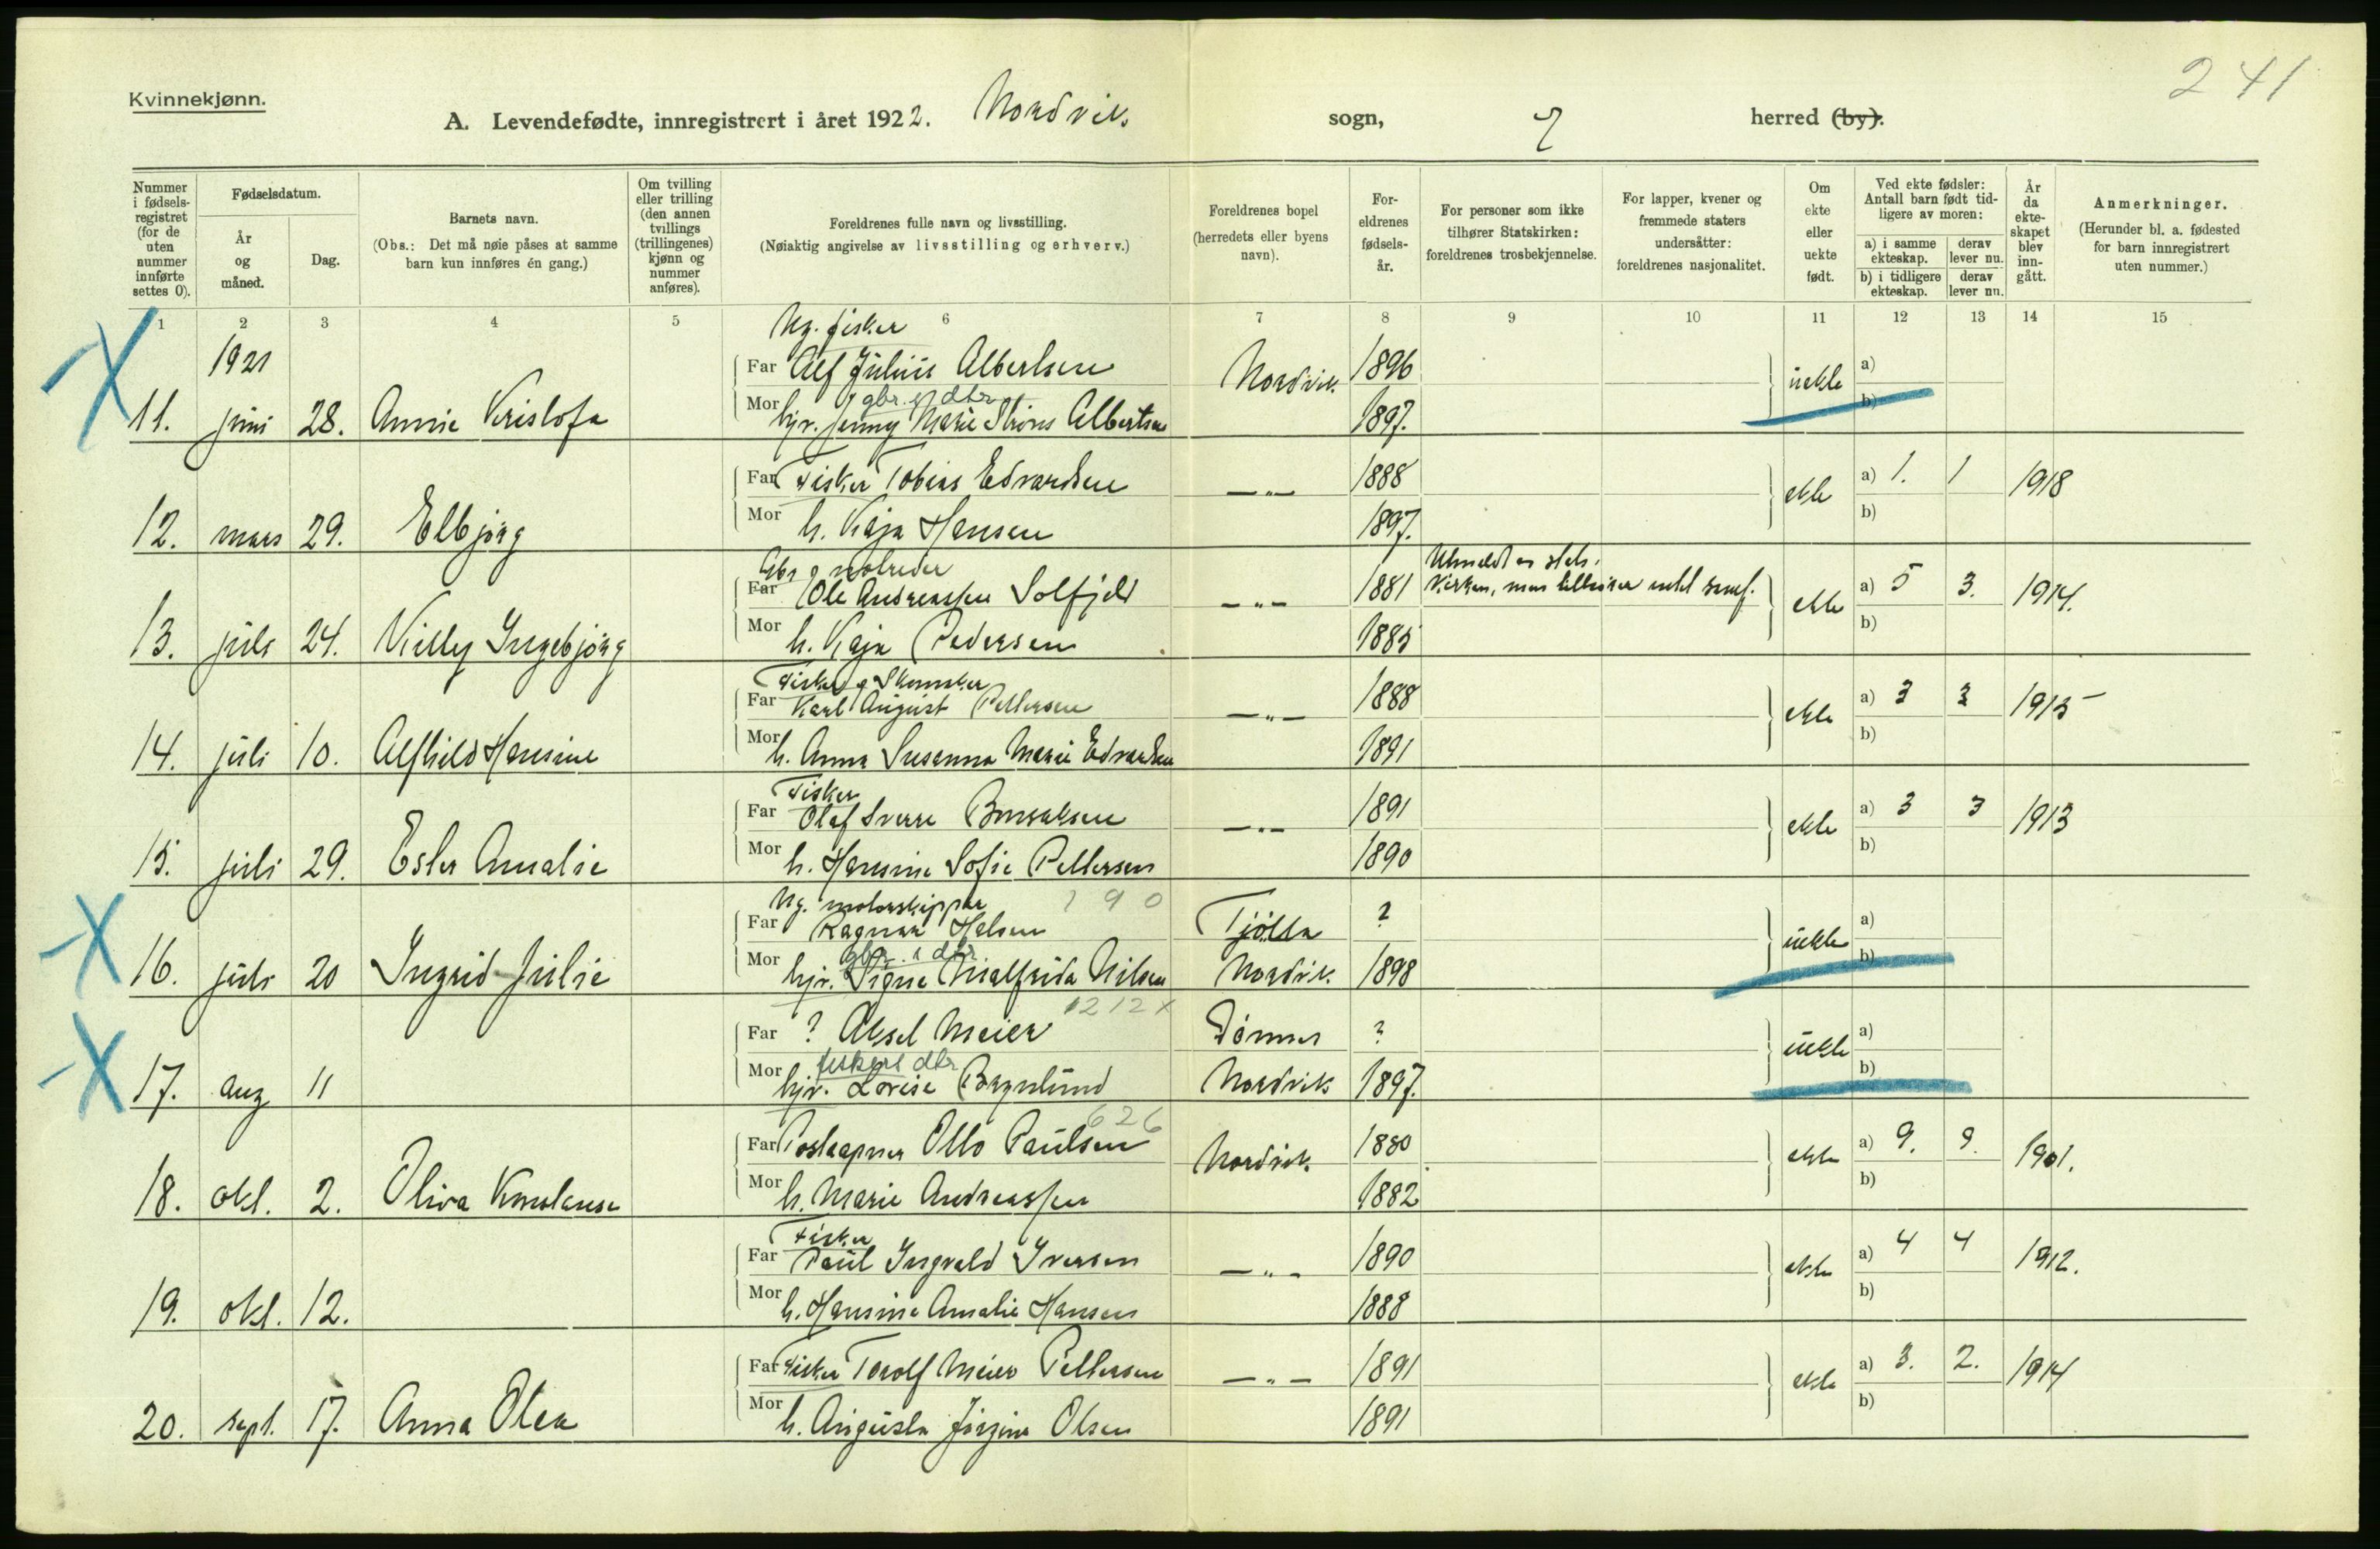 241
Kvinnekjønn.
A. Levendefødte, innregistrert i året 1922. Nordvik. sogn, herred (by).
Nummer i fødselsregistret (for de uten nummer innførte settes 0).
Fødselsdatum.
År og måned.
Dag.
Barnets navn.
(Obs.: Det må nøie påses at samme barn kun innføres én gang.)
Om tvilling eller trilling (den annen tvillings (trillingenes) kjønn og nummer anføres).
Foreldrenes fulle navn og livsstilling.
(Nøiaktig angivelse av livsstilling og erhverv.)
Foreldrenes bopel (herredets eller byens navn).
Foreldrenes fødselsår.
For personer som ikke tilhører Statskirken: foreldrenes trosbekjennelse.
For lapper, kvener og fremmede staters undersåtter: foreldrenes nasjonalitet.
Om ekte eller uekte født.
Ved ekte fødsler: Antall barn født tidligere av moren:
a) i samme ekteskap. derav lever nu.
b) i tidligere ekteskap. derav lever nu.
År da ekteskapet blev inngått.
Anmerkninger.
(Herunder bl. a. fødested for barn innregistrert uten nummer.)
1 2 3 4 5 6 7 8 9 10 11 12 13 14 15
Ug. fisker
1921 Far Alf Julius Albertsen Nordvik. 1896 uekte a)
gbr. dtr
11. juni 28. Annie Kristofa Mor hjv. Jenny Marie Albertsen 1897. b)
Far Fisker Tobias Edvardsen —„— 1888 ekte a) 1. 1 1918
12. mars 29. Elbjörg Mor h. Kaja Hansen 1897. b)
Gbr o notreder
Far Ole Andreassen Solfjeld —„— 1881 Utmeldt av stats-kirken, men tilhörer intet samf. ekte a) 5 3. 1914.
13. juli 24. Villy Ingebjörg Mor h. Kaja Pedersen 1885 b)
Fisker o Skomaker
Far Karl August Pettersen —„— 1888 ekte a) 3 3 1915
14. juli 10. Alfhild Hansine Mor h. Anna Susanna Marie Edvardsen 1891 b)
Fisker
Far Olaf Sverre —„— 1891 ekte a) 3 3 1913
15. juli 29. Ester Amalie Mor h. Hansine Sofie Pettersen 1890 b)
Ug. motorskipper 190
Far Ragnar Tjötta ? uekte a)
gbr. dtr
16. juli 20 Ingrid Julie Mor hjv. Signe Nilsen Nordvik. 1898 b)
1212x
Far ? Aksel Meier Dönnes ? uekte a)
fiskers dtr
17. aug 11 Mor hjv. Lovise Nordvik 1897. b)
626
Far Postaapner Otto Paulsen Nordvik. 1880 ekte a) 9. 9. 1901.
18. okt. 2. Oliva Konstanse Mor h. Marie Andreassen 1882 b)
Fisker
Far Paul Ingvald Iversen —„— 1890 ekte a) 4 4 1912.
19. okt. 12. Mor h. Hansine Amalie Hansen 1888 b)
Far Fisker Torolf Meier Pettersen —„— 1891 ekte a) 3. 2. 1914
20. sept. 17. Anna Olea Mor h. Augusta Jörgine Olsen 1891 b)